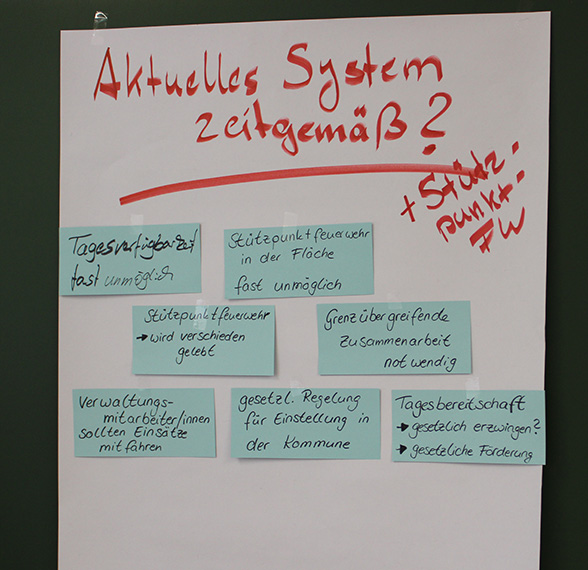 Aktuelles System
zeitgemäß?
+ Stütz-
punkt-
FW
Tagesverfügbarkeit
fast unmöglich
Stützpunktfeuerwehr
in der Fläche
fast unmöglich
Stützpunktfeuerwehr
→ wird verschieden
gelebt
Grenzübergreifende
Zusammenarbeit
notwendig
Verwaltungs-
mitarbeiter/innen
sollten Einsätze
mitfahren
gesetzl. Regelung
für Einstellung in
der Kommune
Tagesbereitschaft
→ gesetzlich erzwingen?
→ gesetzliche Förderung